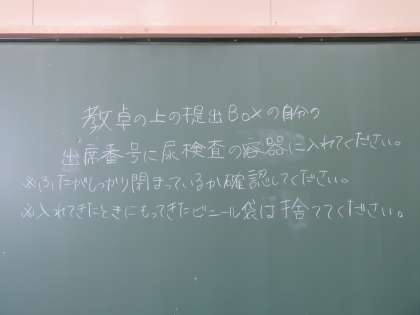 教卓の上の提出Boxの自分の
出席番号に尿検査の容器に入れてください。
※ふたがしっかり閉まっているか確認してください。
※入れてきたときにもってきたビニール袋は捨ててください。